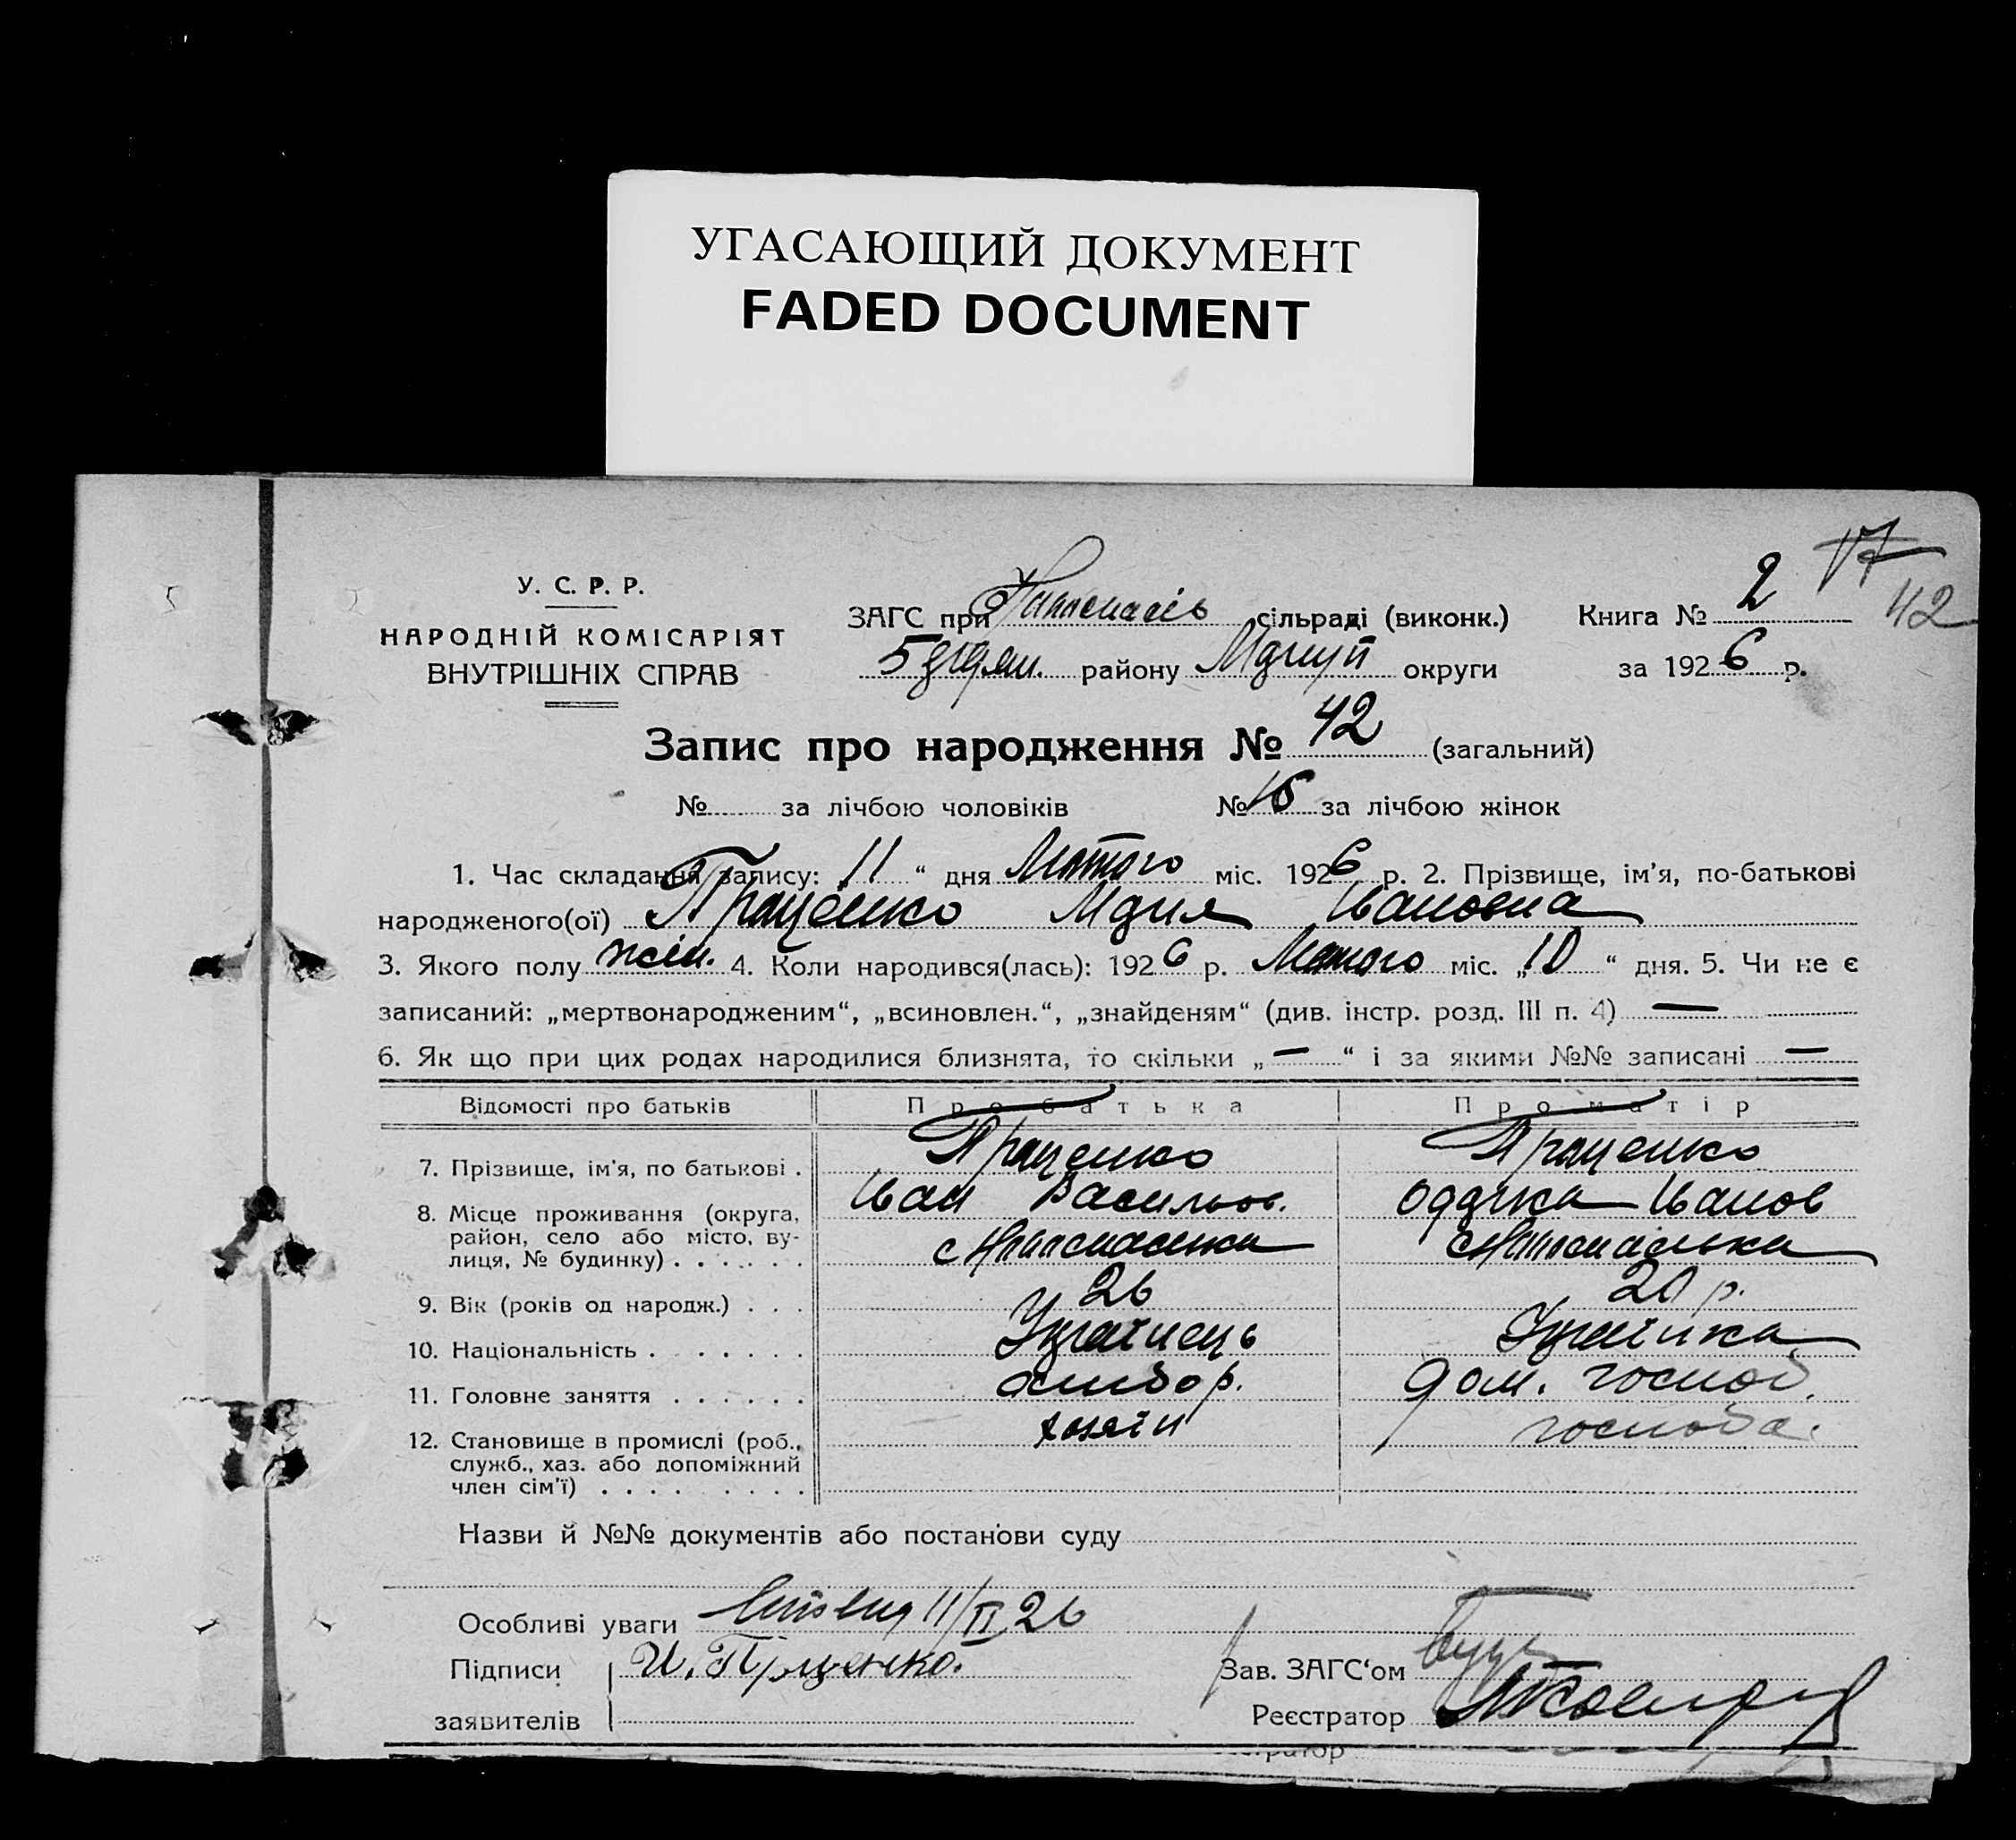 УГАСАЮЩИЙ ДОКУМЕНТ
FADED DOCUMENT
17
42
У. С. Р. Р.
НАРОДНІЙ КОМІСАРІЯТ
ВНУТРІШНІХ СПРАВ
ЗАГС при сільраді (виконк.)
Книга № 2
району округи
за 1926 р.
Запис про народження № 42 (загальний)
№ за лічбою чоловіків № за лічбою жінок
1. Час складання запису: 11 “ дня Лютого міс. 1926 р. 2. Прізвище, ім'я, по-батькові
народженого(ої) Проценко Марія Івановна
3. Якого полу жін. 4. Коли народився(лась): 1926 р. Лютого міс. „10“ дня. 5. Чи не є
записаний: „мертвонародженим“, „всиновлен.“, „знайденям“ (див. інстр. розд. III п. 4) —
6. Як що при цих родах народилися близнята, то скільки „—“ і за якими №№ записані —
Відомості про батьків Про батька Про матір
7. Прізвище, ім'я, по батькові . Проценко Проценко
Іван Васильов. Іванов
8. Місце проживання (округа,
район, село або місто, ву-
лиця, № будинку) . . . . . .
9. Вік (років од народж.) . . . 26 20 р.
10. Національність . . . . . . . Українець Українка
11. Головне заняття . . . . . . хлібор. дом. господ.
12. Становище в промислі (роб., хазяїн господа.
служб., хаз. або допоміжний
член сім'ї) . . . . . . . .
Назви й №№ документів або постанови суду
Особливі уваги 11/II 26
Підписи И. Проценко. Зав. ЗАГС‘ом
заявителів Реєстратор